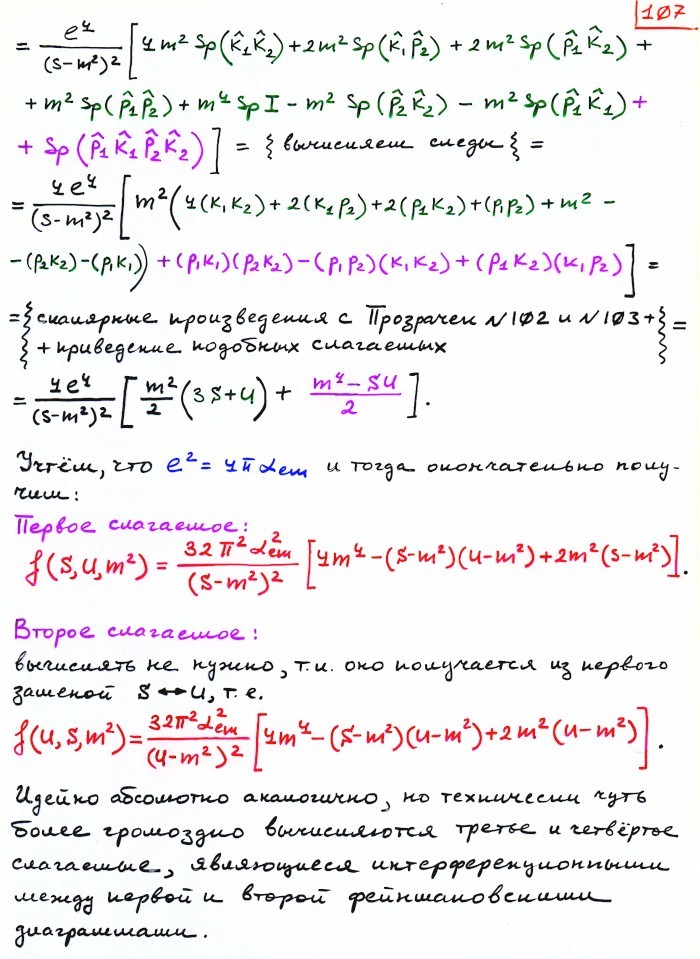 107
= e⁴/(S-m²)² [4m² Sp(k̂₁k̂₂) + 2m² Sp(k̂₁p̂₂) + 2m² Sp(p̂₁k̂₂) +
+ m² Sp(p̂₁p̂₂) + m⁴ Sp I - m² Sp(p̂₂k̂₂) - m² Sp(p̂₁k̂₁) +
+ Sp(p̂₁k̂₁p̂₂k̂₂)] = { вычисляем следы } =
= 4e⁴/(S-m²)² [m²(4(k₁k₂) + 2(k₁p₂) + 2(p₁k₂) + (p₁p₂) + m² -
- (p₂k₂) - (p₁k₁)) + (p₁k₁)(p₂k₂) - (p₁p₂)(k₁k₂) + (p₁k₂)(k₁p₂)] =
= { скалярные произведения с Прозрачек №102 и №103 +
+ приведение подобных слагаемых } =
= 4e⁴/(S-m²)² [m²/2 (3S+U) + (m⁴-SU)/2].
Учтём, что e² = 4πα_em и тогда окончательно полу-
чим:
Первое слагаемое:
f(S,U,m²) = 32π²α²_em/(S-m²)² [4m⁴ - (S-m²)(U-m²) + 2m²(S-m²)].
Второе слагаемое:
вычислять не нужно, т.к. оно получается из первого
заменой S ↔ U, т.е.
f(U,S,m²) = 32π²α²_em/(U-m²)² [4m⁴ - (S-m²)(U-m²) + 2m²(U-m²)].
Идейно абсолютно аналогично, но технически чуть
более громоздко вычисляются третье и четвёртое
слагаемые, являющиеся интерференционными
между первой и второй фейнмановскими
диаграммами.